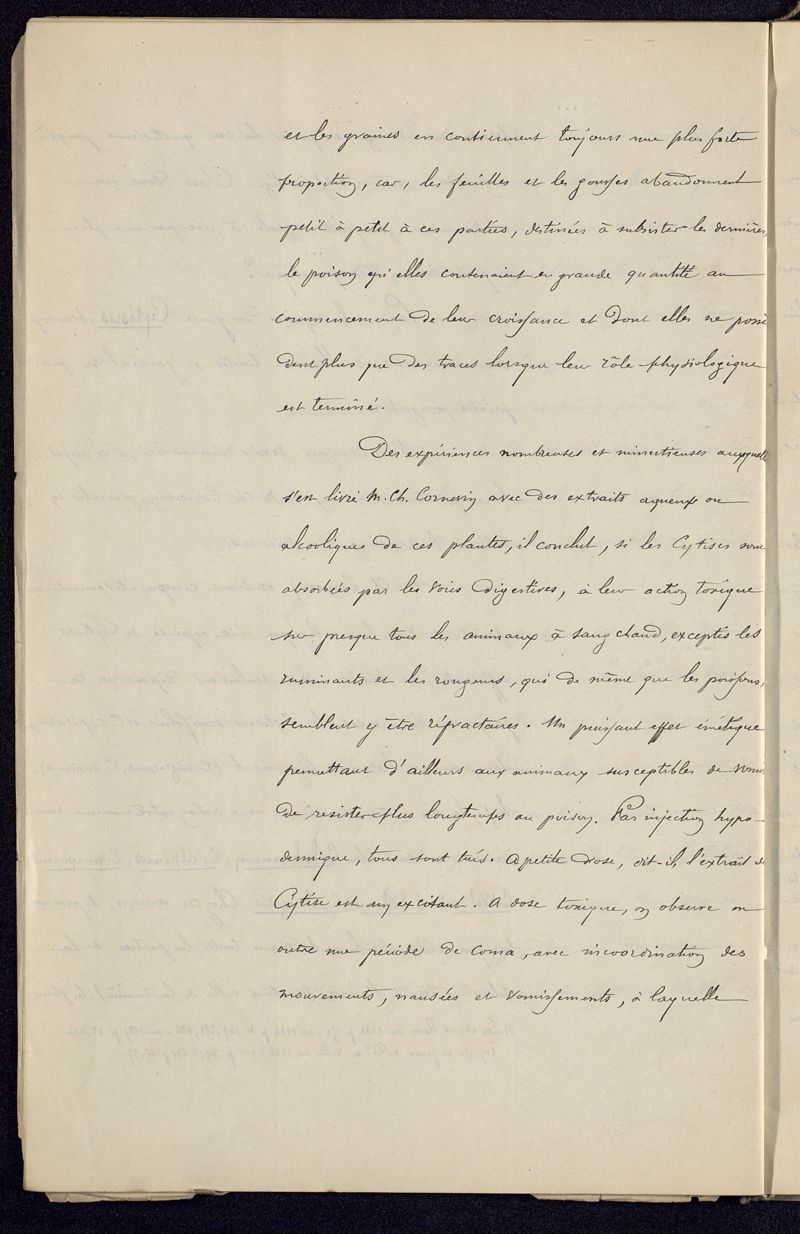 et les graines en contiennent toujours une plus forte
proportion, car, les feuilles et les gousses abandonnent
petit à petit à ces parties, destinées à subsister les dernières,
le poison qu'elles contenaient en grande quantité au
commencement de leur croissance et dont elles ne possè
dent plus que des traces lorsque leur rôle physiologique
est terminé.
Des expériences nombreuses et minutieuses auxquelles
s'est livré M. Ch. Cornevin avec des extraits aqueux ou
alcooliques de ces plantes, il conclut, si les Cytises sont
absorbées par les voies digestives, à leur action toxique
sur presque tous les animaux à sang chaud, exceptés les
ruminants et les rongeurs, qui de même que les poissons,
semblent y être réfractaires. Un puissant effet émétique
permettant d'ailleurs aux animaux susceptibles de vomir
de resister plus longtemps au poison. Par injection hypo-
dermique, tous sont tués. A petite dose, dit-il, l'extrait de
Cytise est un excitant. A dose toxique, on observe en
outre une période de coma, avec incoordination des
mouvements, nausées et vomissements, à laquelle